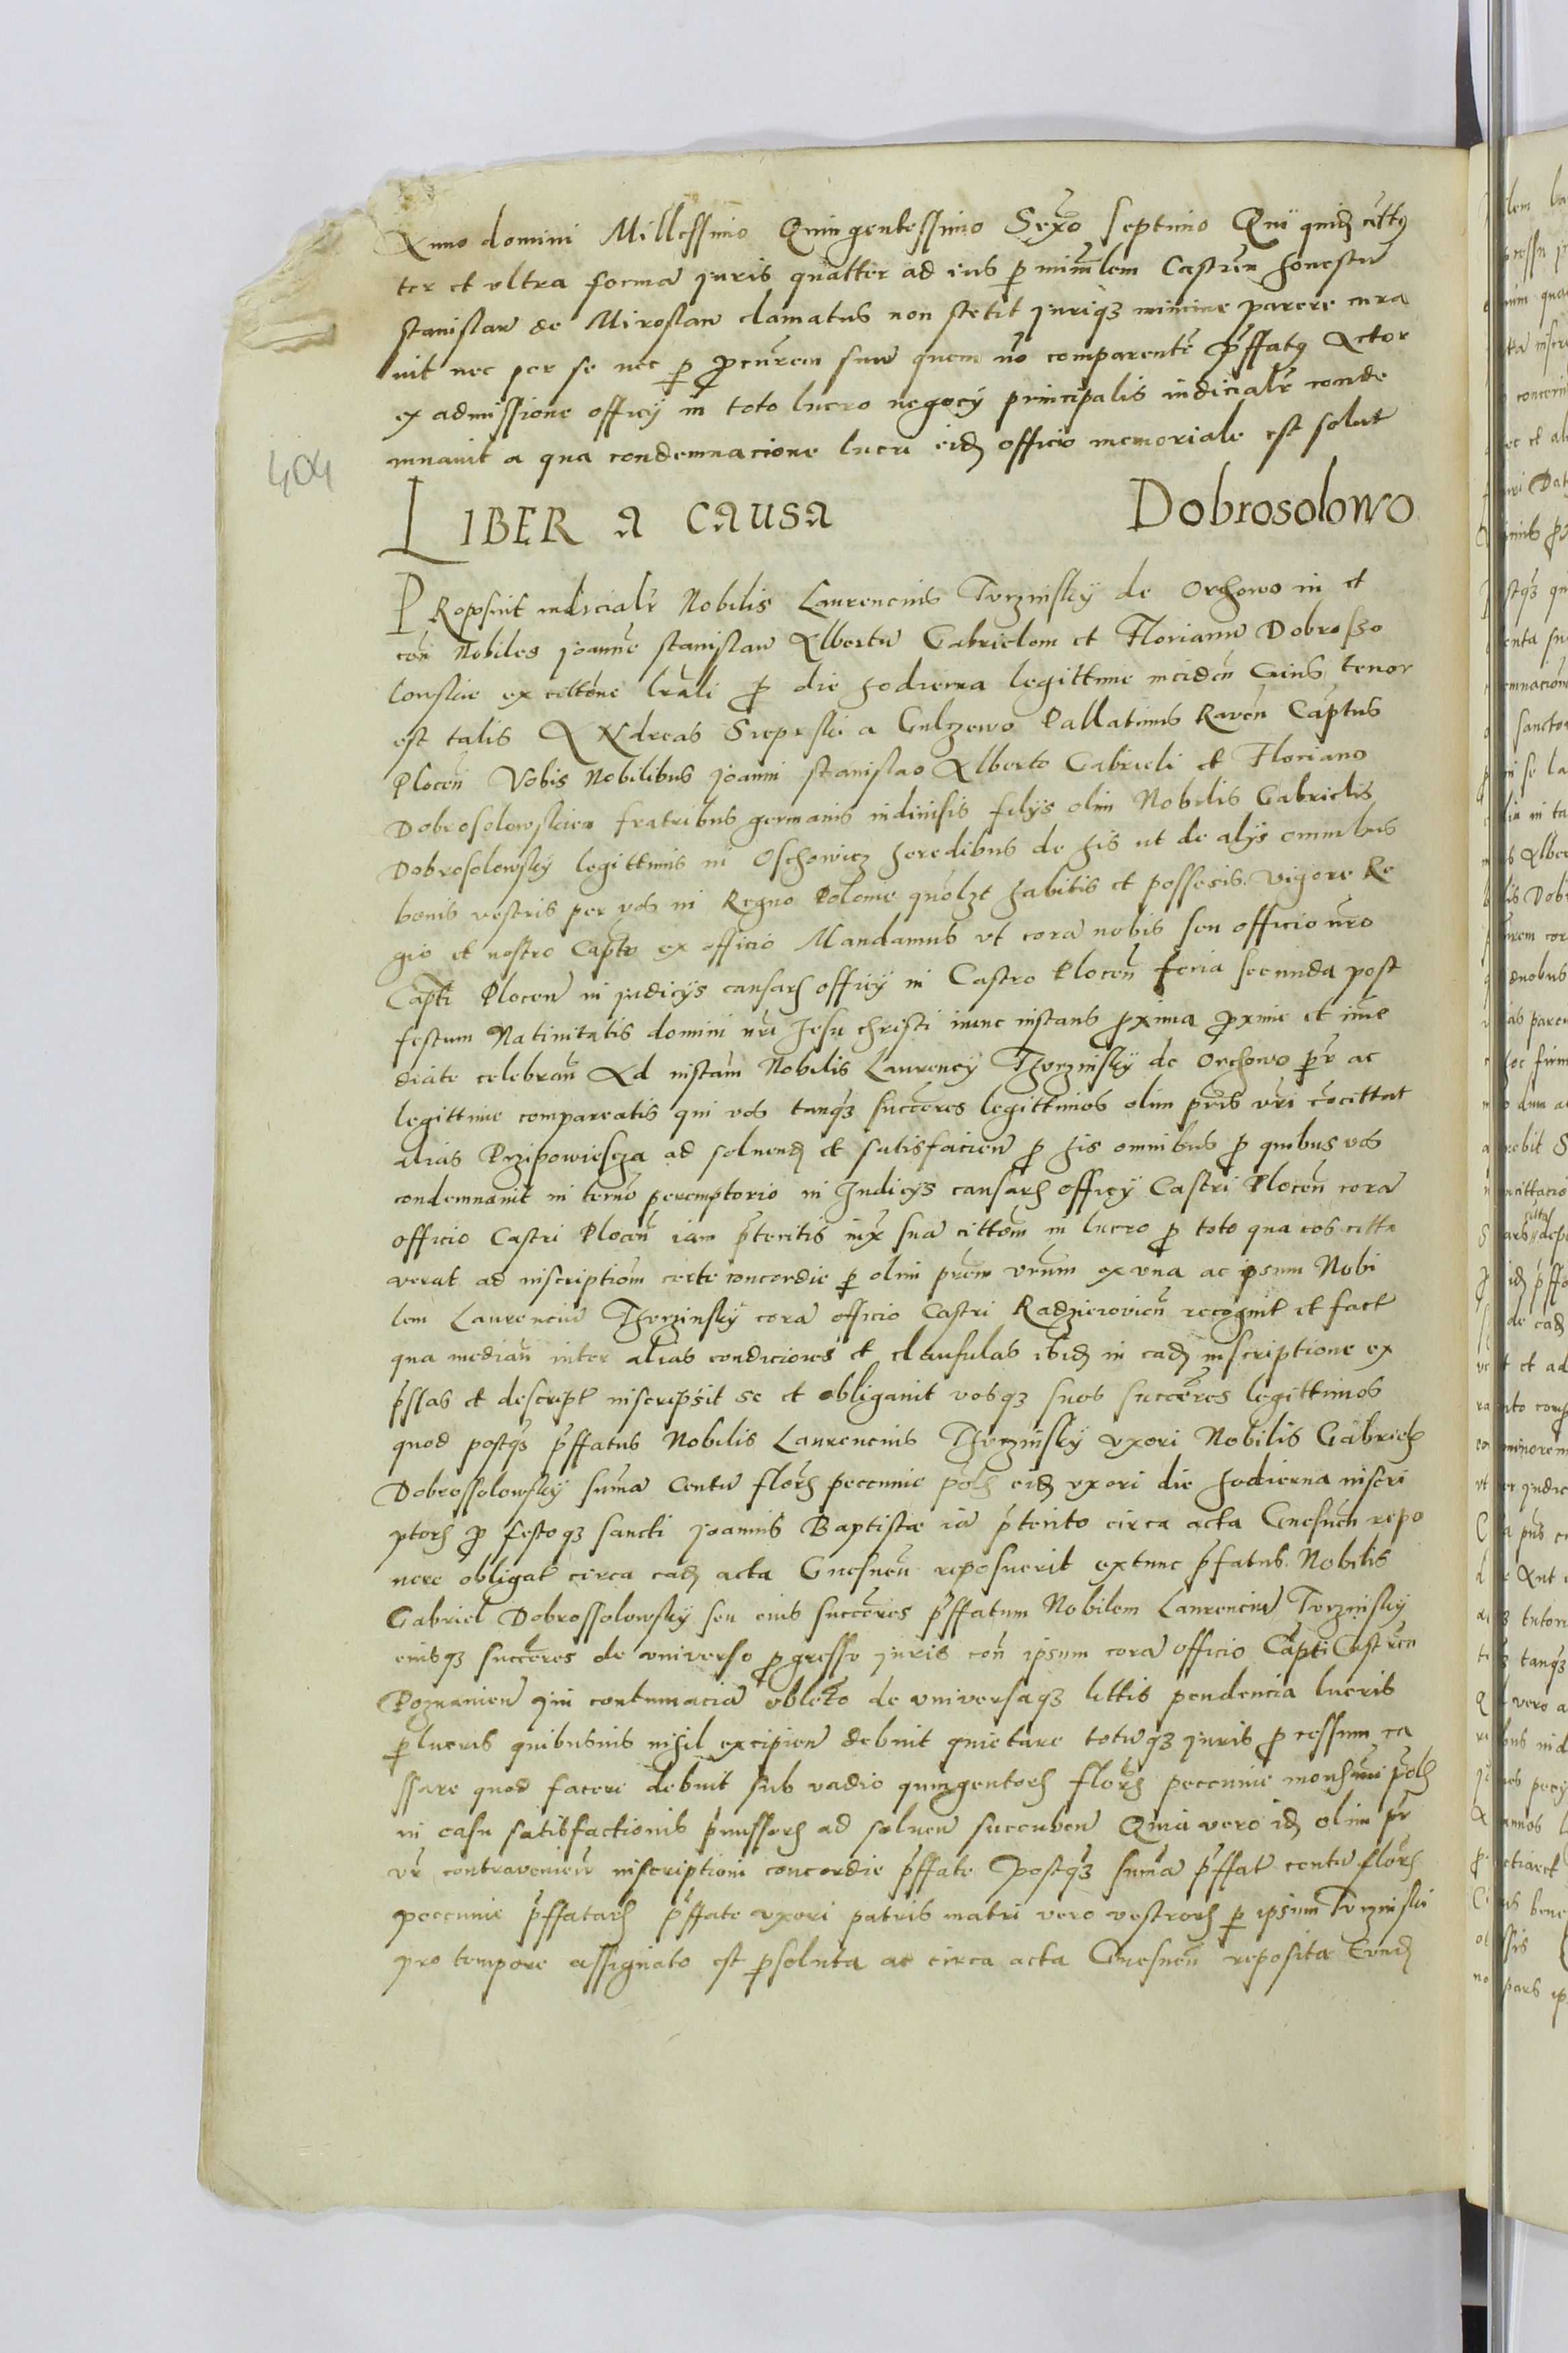 Anno domini Millessimo Quingentessimo Sexo septimo Qui quidȝ citt9
ter et vltra forma juris quatter ad ius p minrlem Castren honestu
stanislaw de Miroslaw clamatus non stetit juriqȝ minime parere cura
uit nec per se nec p procurem suu quem no comparente pffat9 Actor
ex admissione officy in toto lucro negocy principalis iudicialr conde
mnauit a qua condemnacione lucri eidȝ officio memoriale est solut
404
LIBER A CAUSA Dobrosolowo
PRoposuit iudicialr Nobilis Laurencius Trzzinsky de Orchowo in et
con Nobiles joanne stanislau Albertu Gabrielem et Florianu Dobrosso
lowskie ex cittone lrali pro die hodierna legittime inciden Cuius tenor
est talis ANdreas Sieprski a Gulczewo Pallatinus Raven Captus
Plocen Vobis Nobilibus joanni stanislao Alberto Gabrieli et Floriano
Dobrosolowskiem fratribus germanis indiuisis filys olim Nobilis Gabrielis
Dobrosolowsky legittimis in Oschowicz heredibus de his ut de alys omnibus
bonis vestris per vos in Regno Polonie quolzt habitis et possesis vigore Re
gio et nostro Capto ex officio Mandamus vt cora nobis seu officio nro
Capti Plocen in judicys causarh officy in Castro Plocen feria secunda post
festum Natiuitatis domini nri Jesu christi nunc instans proxima proxime et ime
diate celebran Ad instam Nobilis Laurency Thrzzinsky de Orchowo pr ac
legittime compareatis qui vos tanqȝ succeres legittimos olim pris vri cocittat
alias Przipowiescza ad soluendȝ et satisfacien pro his omnibus pro quibus vos
condemnauit in termo peremptorio in Judicys causarh officy Castri Plocen cora
officio Castri Plocen iam preteritis iux sua cittom in lucro pro toto qua vos citta
verat ad inscriptiom certe concordie p olim prem vrum ex vna ac ipsum Nobi
lem Laurenciu Thrzzinsky cora officio Castri Radzieiovien recognit et fact
qua median inter alias condiciones et clausulas ibidȝ in eadȝ inscriptione ex
pssas et descript inscripsit se et obligauit vosqȝ suos succeres legittimos
quod postqȝ pffatus Nobilis Laurencius Thrzzinsky vxori Nobilis Gabrielis
Dobrossolowsky suma Centu florh peccunie polh eidȝ vxori die hodierna inscri
ptorh pro festoqȝ sancti joannis Baptistæ ia pterito circa acta Gnesnen repo
nere obligat circa eadȝ acta Gnesnen reposuerit extunc pfatus Nobilis
Gabriel Dobrossolowsky seu eius succeres pffatum Nobilem Laurenciu Trzzinsky
eiusqȝ succeres de vniverso progressu juris con ipsum cora officio Capti Castren
Poznanien in contumacia obtento de vniversaqȝ littis pendencia lucris
plucris quibusuis nihil excipien debuit quietare totuqȝ juris processum ca
ssare quod facere debuit sub vadio quingentorh florh peccunie polh
in casu satisfactionis pmissorh ad soluen succuben Quia vero idȝ olim pr
vr contraveniens inscriptioni concordie pffate Postqȝ suma pffat centu florh
peccunie pffatarh pffate vxori patris matri vero vestrorh p ipsum Trzzinski
pro tempore assignato est psoluta ac circa acta Gnesnen reposita Eundȝ